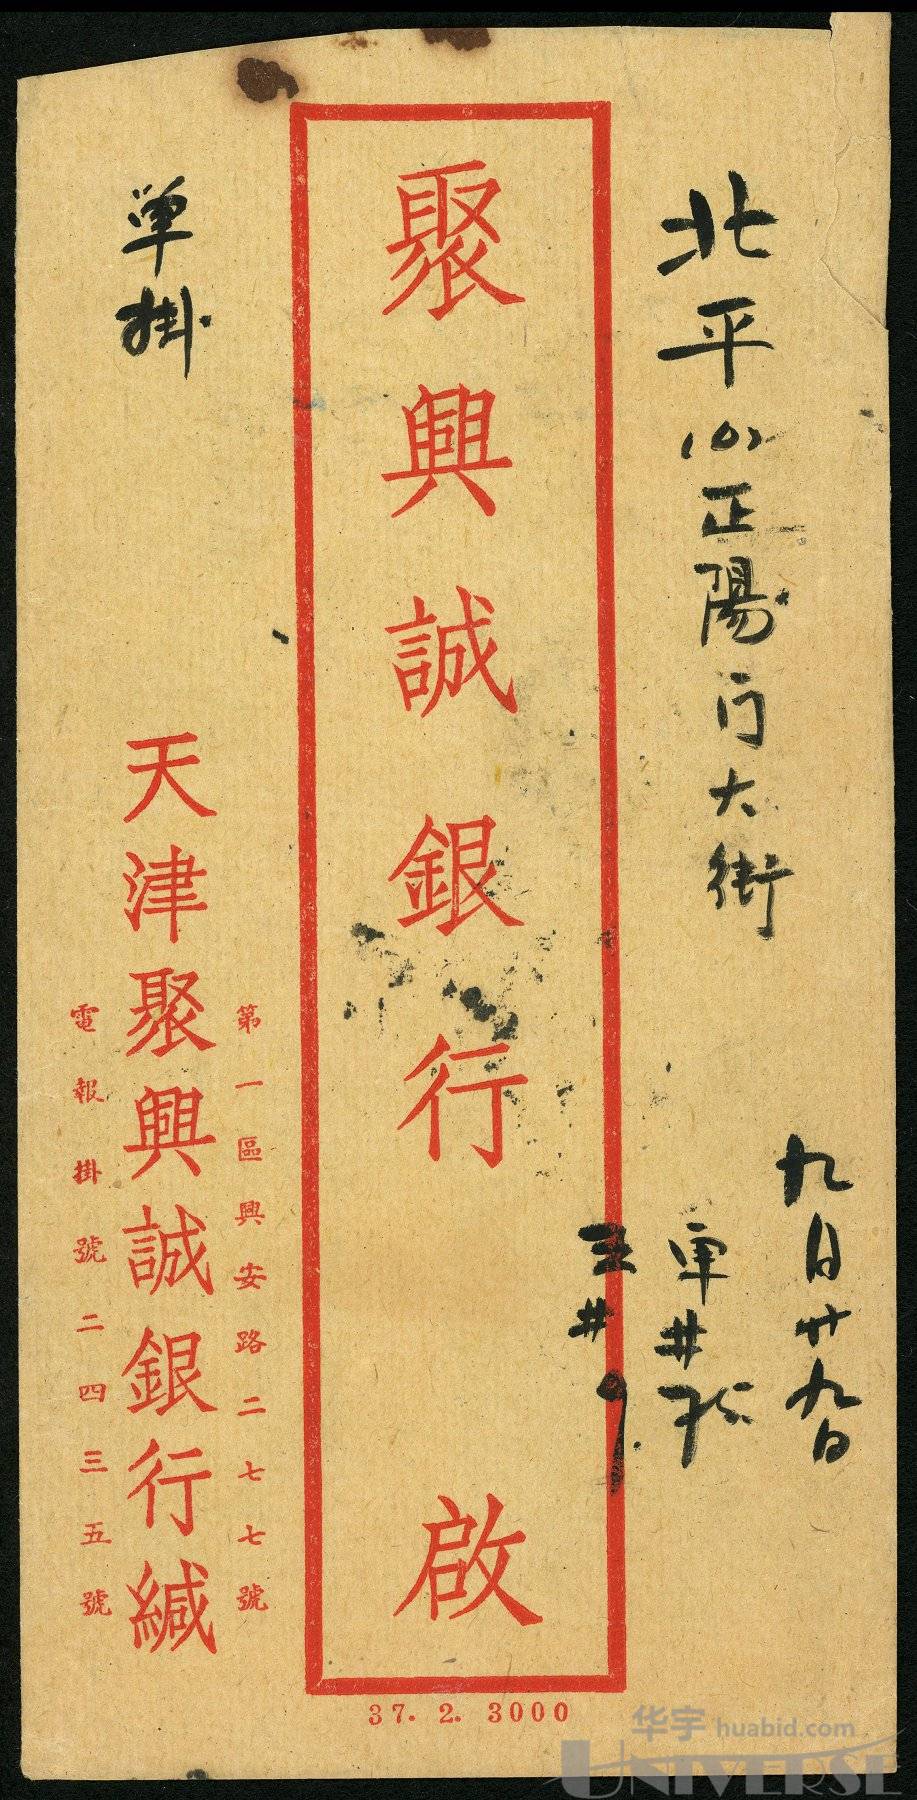 北平(6)正陽门大街
九月廿九日
聚興誠銀行
啟
單掛
第一區興安路二七七號
天津聚興誠銀行緘
電報掛號二四三五號
37. 2. 3000
华宇 huabid.com
UNIVERSE